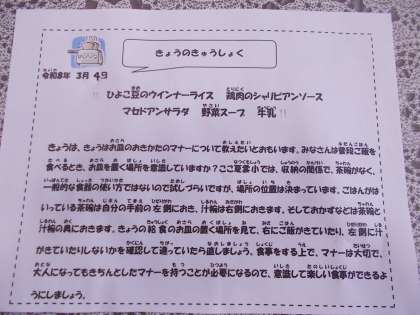 きょうのきゅうしょく
令和8年 3月 4日
ひよこ豆のウインナーライス 鶏肉のシャリピアンソース
マセドアンサラダ 野菜スープ 牛乳
きょうは、きょうはお皿のおきかたのマナーについて教えたいとおもいます。みなさんは普段ご飯を
食べるとき、お皿を置く場所を意識していますか？ここ夏雲小では、収納の関係で、茶碗がなく、
一般的な食器の使い方ではないので試しづらいですが、場所の位置は決まっています。ごはんがは
いっている茶碗は自分の手前の左側におき、汁椀は右側におきます。そしておかずなどは茶碗と
汁椀の奥におきます。きょうの給食のお皿の置く場所を見て、右にご飯がきていたり、左側に汁
がきていたりしないかを確認して違っていたら直しましょう。食事をする上で、マナーは大切で、
大人になってもきちんとしたマナーを持つことが必要になるので、意識して楽しい食事ができるよ
うにしましょう。